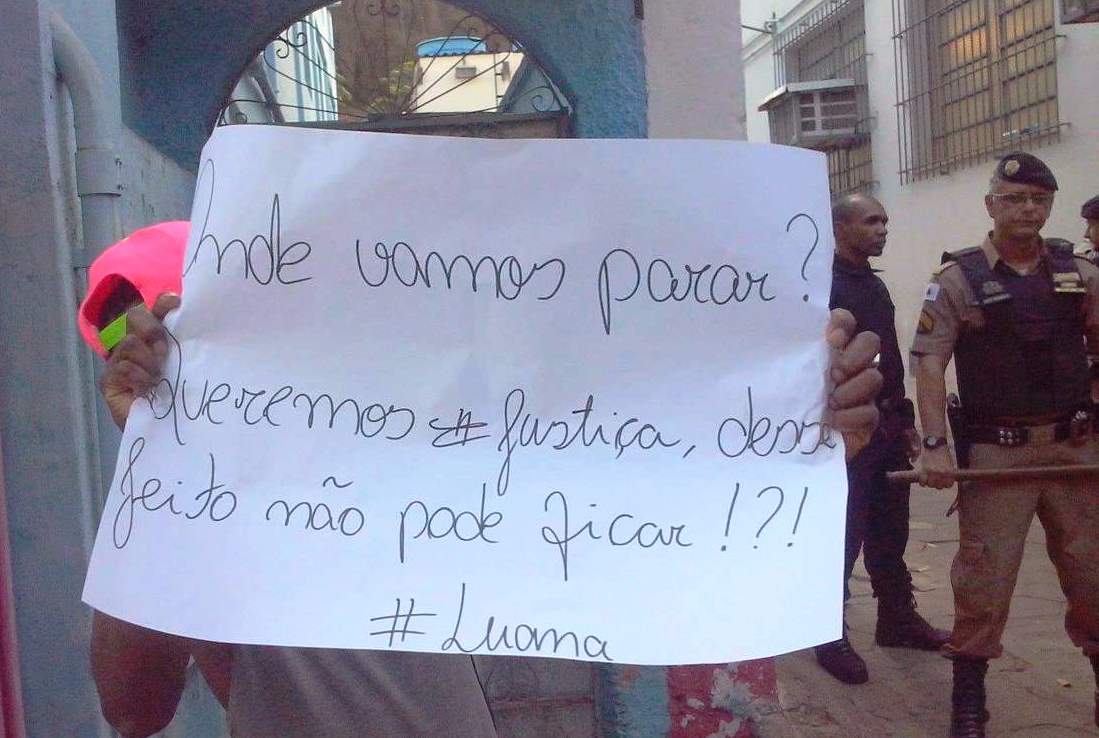 Onde vamos parar?
Queremos #Justiça, desse
jeito não pode ficar!?!
#Luana